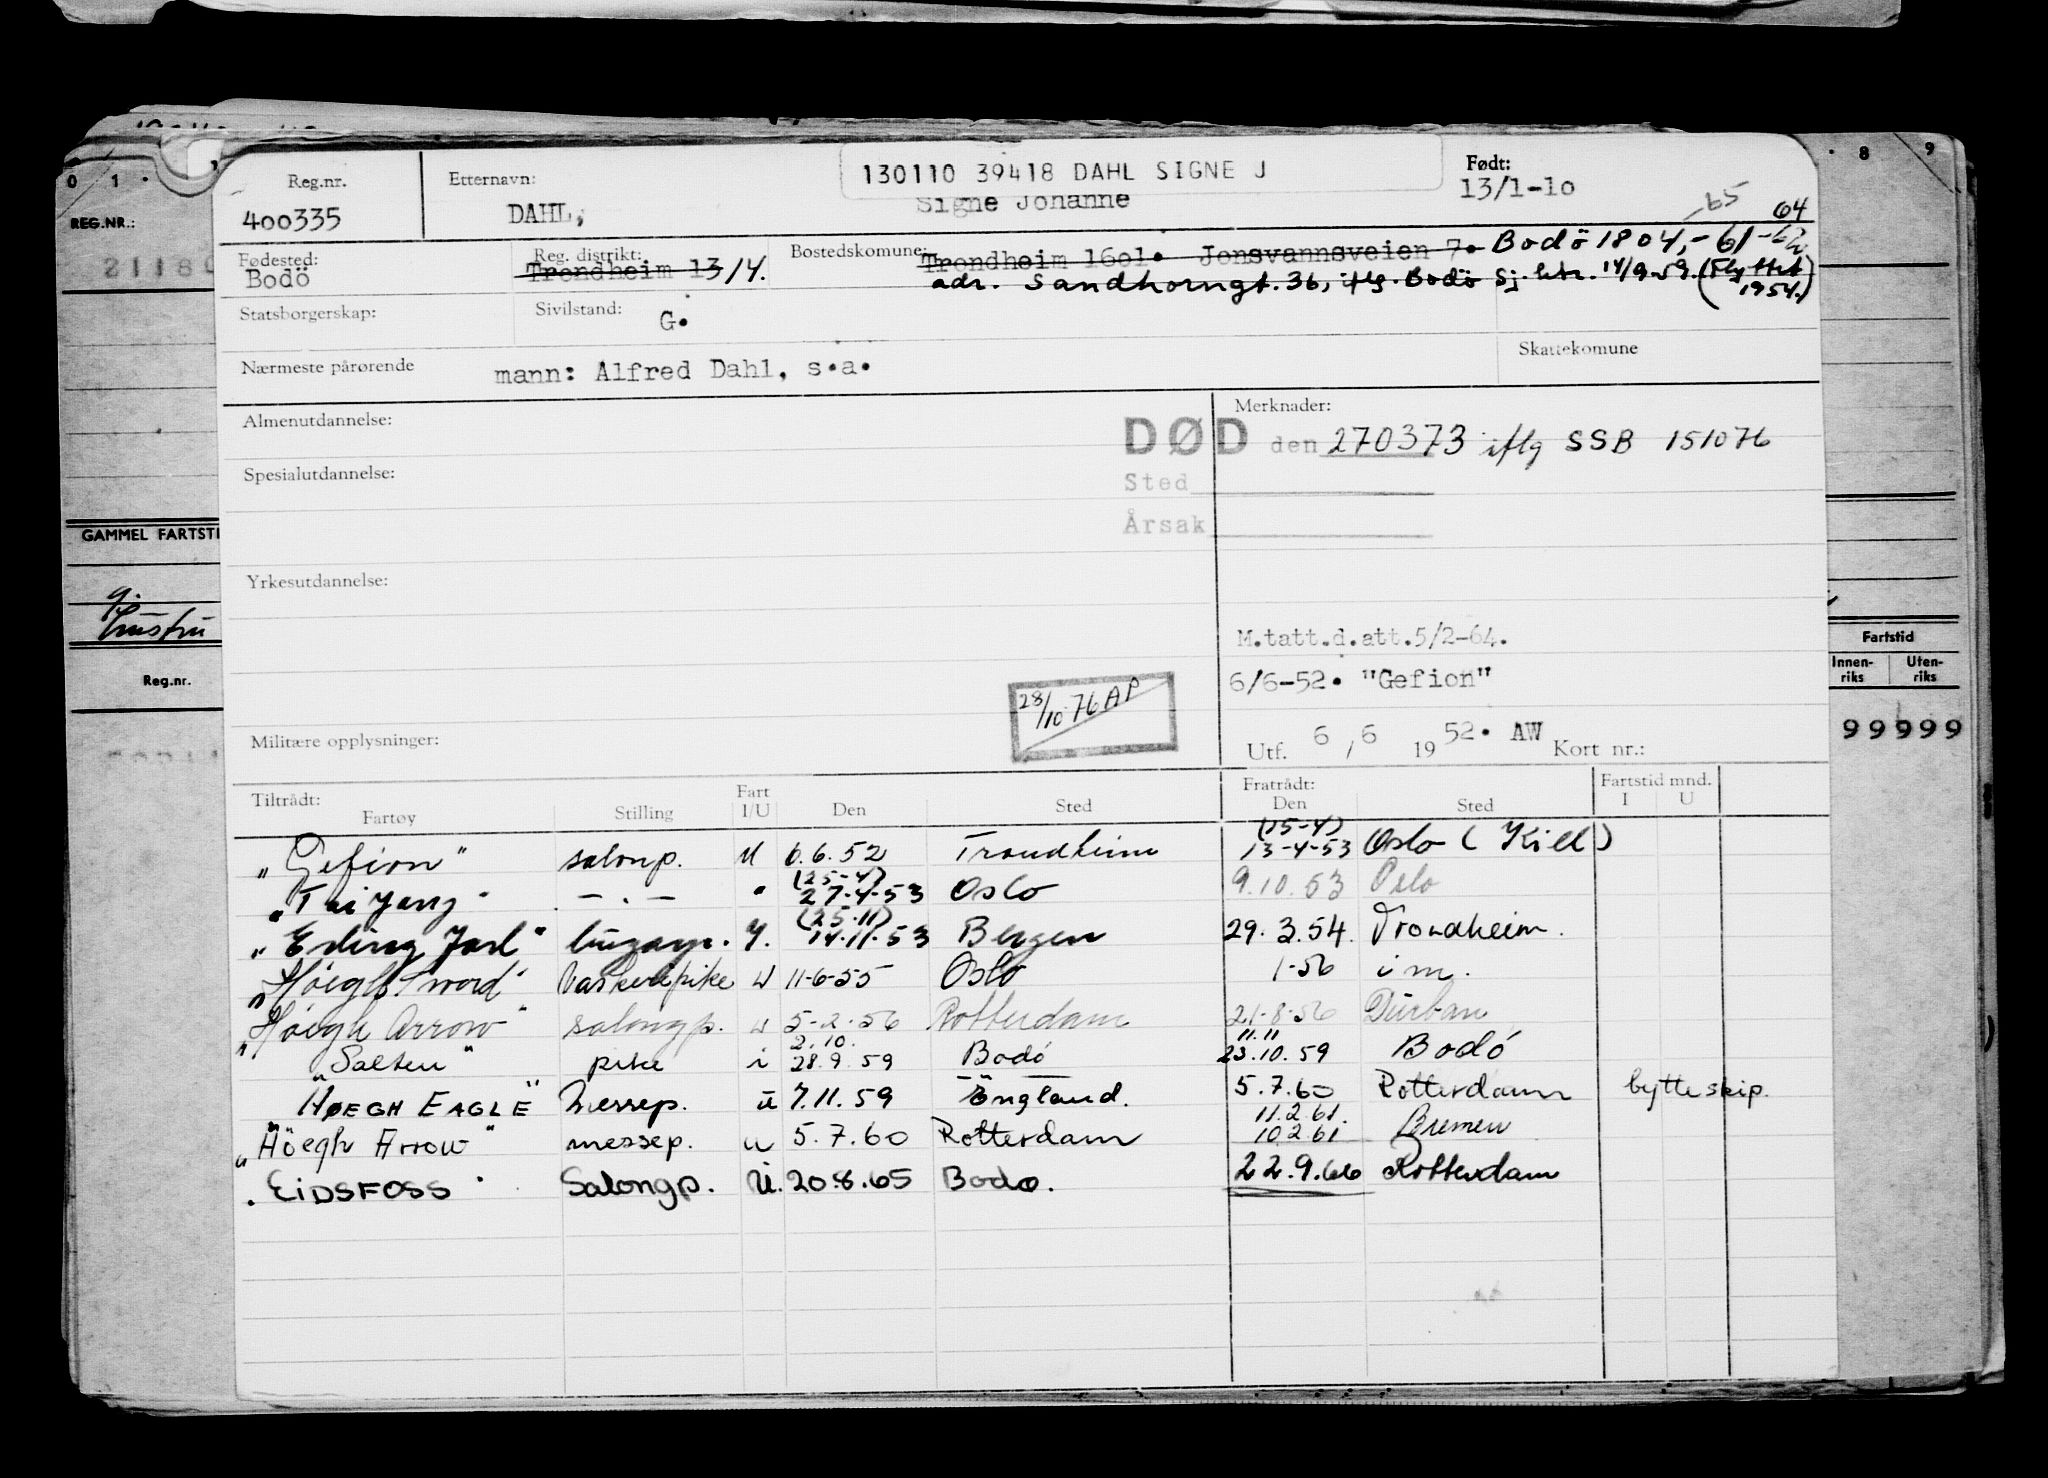 0 1 · 8 9
REG.NR.:
2118
GAMMEL FARTSTI
g.
Reg.nr.
Fartstid
Innen-riks Uten-riks
99999
Reg.nr. Etternavn: 130110 39418 DAHL SIGNE J Født:
400335 DAHL, Signe Johanne 13/1-10
-65 64
Fødested: Reg. distrikt: Bostedskomune:
Bodö Trondheim 13 14. Trondheim 1601. Jonsvannsveien 7. Bodö 1804, -61 -62
adr. Sandhorngt. 36, iflg. Bodö Sj. ktr. 14/9-59. (Flyttet 1954.)
Statsborgerskap: Sivilstand: G.
Nærmeste pårørende mann: Alfred Dahl, s.a. Skattekomune
Almenutdannelse: Merknader:
DØD den 270373 iflg SSB 151076
Spesialutdannelse: Sted
Årsak
Yrkesutdannelse:
M.tatt.d.att.5/2-64.
6/6-52. "Gefion"
28/10 76 AP
Militære opplysninger: Utf. 6 / 6 19 52. AW Kort nr.:
Tiltrådt: Fart Fratrådt: Fartstid mnd.
Fartøy Stilling I/U Den Sted Den Sted I U
(25-4)
"Gefion" salonp. U 6.6.52 Trondheim 13-4-53 Oslo (Kiel)
(25-4)
"Tai Yang" - . - " 27-4-53 Oslo 9.10.53 Oslo
(25.11)
"Erling Jarl" lugarp. I. 14.11.53 Bergen 29.3.54. Trondheim.
"Høegh Sword" Vaskeripike u 11-6-55 Oslo 1-56 i m.
"Høegh Arrow" salongp. u 5-2-56 Rotterdam 21-8-56 Durban
2.10. 11.11
"Salten" pike i 28.9.59 Bodö 23.10.59 Bodö
"HØEGH EAGLE" Messep. u 7.11.59 England. 5.7.60 Rotterdam bytte skip.
11.2.61.
"Höegh Arrow" messep. u 5.7.60 Rotterdam 10 2.61 Bremen
"EIDSFOSS" Salongp. U. 20.8.65 Bodø. 22.9.66 Rotterdam